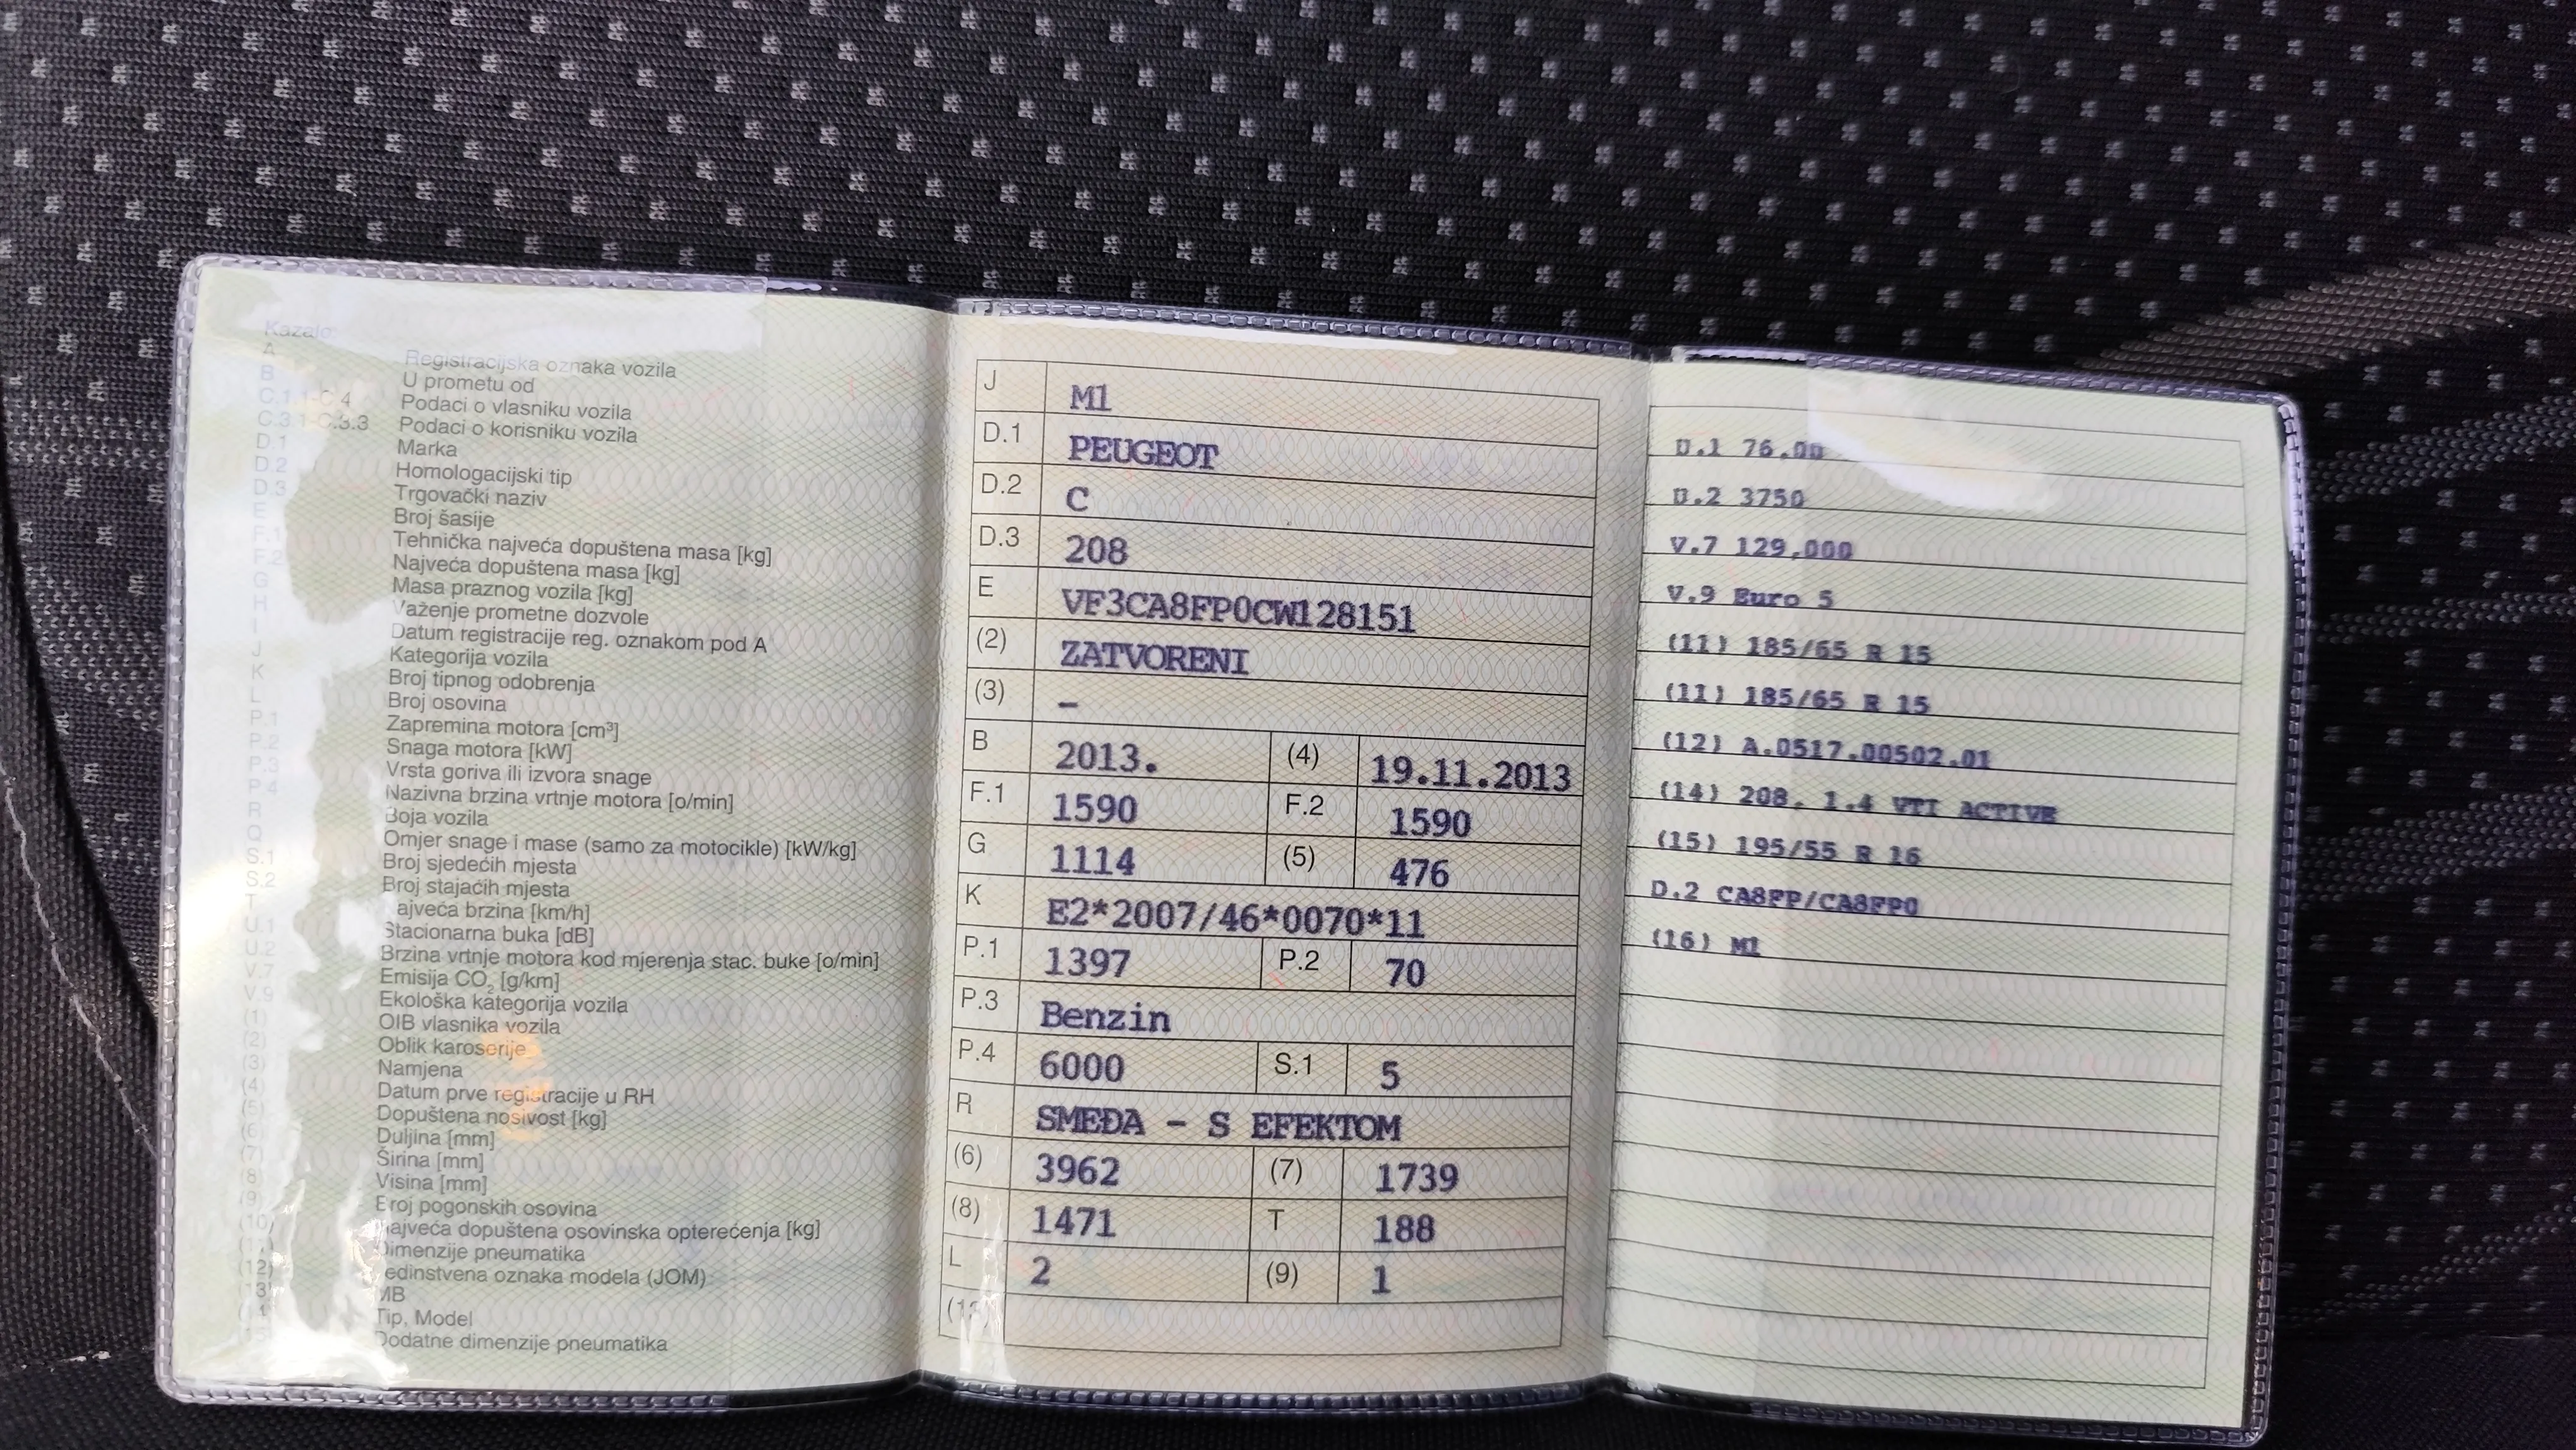 Kazalo:
A Registracijska oznaka vozila
B U prometu od
C.1.1-C.4 Podaci o vlasniku vozila
C.3.1-C.3.3 Podaci o korisniku vozila
D.1 Marka
D.2 Homologacijski tip
D.3 Trgovački naziv
E Broj šasije
F.1 Tehnička najveća dopuštena masa [kg]
F.2 Najveća dopuštena masa [kg]
G Masa praznog vozila [kg]
H Važenje prometne dozvole
I Datum registracije reg. oznakom pod A
J Kategorija vozila
K Broj tipnog odobrenja
L Broj osovina
P.1 Zapremina motora [cm³]
P.2 Snaga motora [kW]
P.3 Vrsta goriva ili izvora snage
P.4 Nazivna brzina vrtnje motora [o/min]
R Boja vozila
Q Omjer snage i mase (samo za motocikle) [kW/kg]
S.1 Broj sjedećih mjesta
S.2 Broj stajaćih mjesta
T Najveća brzina [km/h]
U.1 Stacionarna buka [dB]
U.2 Brzina vrtnje motora kod mjerenja stac. buke [o/min]
V.7 Emisija CO₂ [g/km]
V.9 Ekološka kategorija vozila
(1) OIB vlasnika vozila
(2) Oblik karoserije
(3) Namjena
(4) Datum prve registracije u RH
(5) Dopuštena nosivost [kg]
(6) Duljina [mm]
(7) Širina [mm]
(8) Visina [mm]
(9) Broj pogonskih osovina
(10) Najveća dopuštena osovinska opterećenja [kg]
(11) Dimenzije pneumatika
(12) Jedinstvena oznaka modela (JOM)
(13) MB
(14) Tip, Model
Dodatne dimenzije pneumatika
J M1
D.1 PEUGEOT
D.2 C
D.3 208
E VF3CA8FP0CW128151
(2) ZATVORENI
(3) –
B 2013. (4) 19.11.2013
F.1 1590 F.2 1590
G 1114 (5) 476
K E2*2007/46*0070*11
P.1 1397 P.2 70
P.3 Benzin
P.4 6000 S.1 5
R SMEĐA - S EFEKTOM
(6) 3962 (7) 1739
(8) 1471 T 188
L 2 (9) 1
(13)
U.1 76.00
U.2 3750
V.7 129,000
V.9 Euro 5
(11) 185/65 R 15
(11) 185/65 R 15
(12) A.0517.00502.01
(14) 208, 1.4 VTI ACTIVE
(15) 195/55 R 16
D.2 CA8FP/CA8FP0
(16) M1